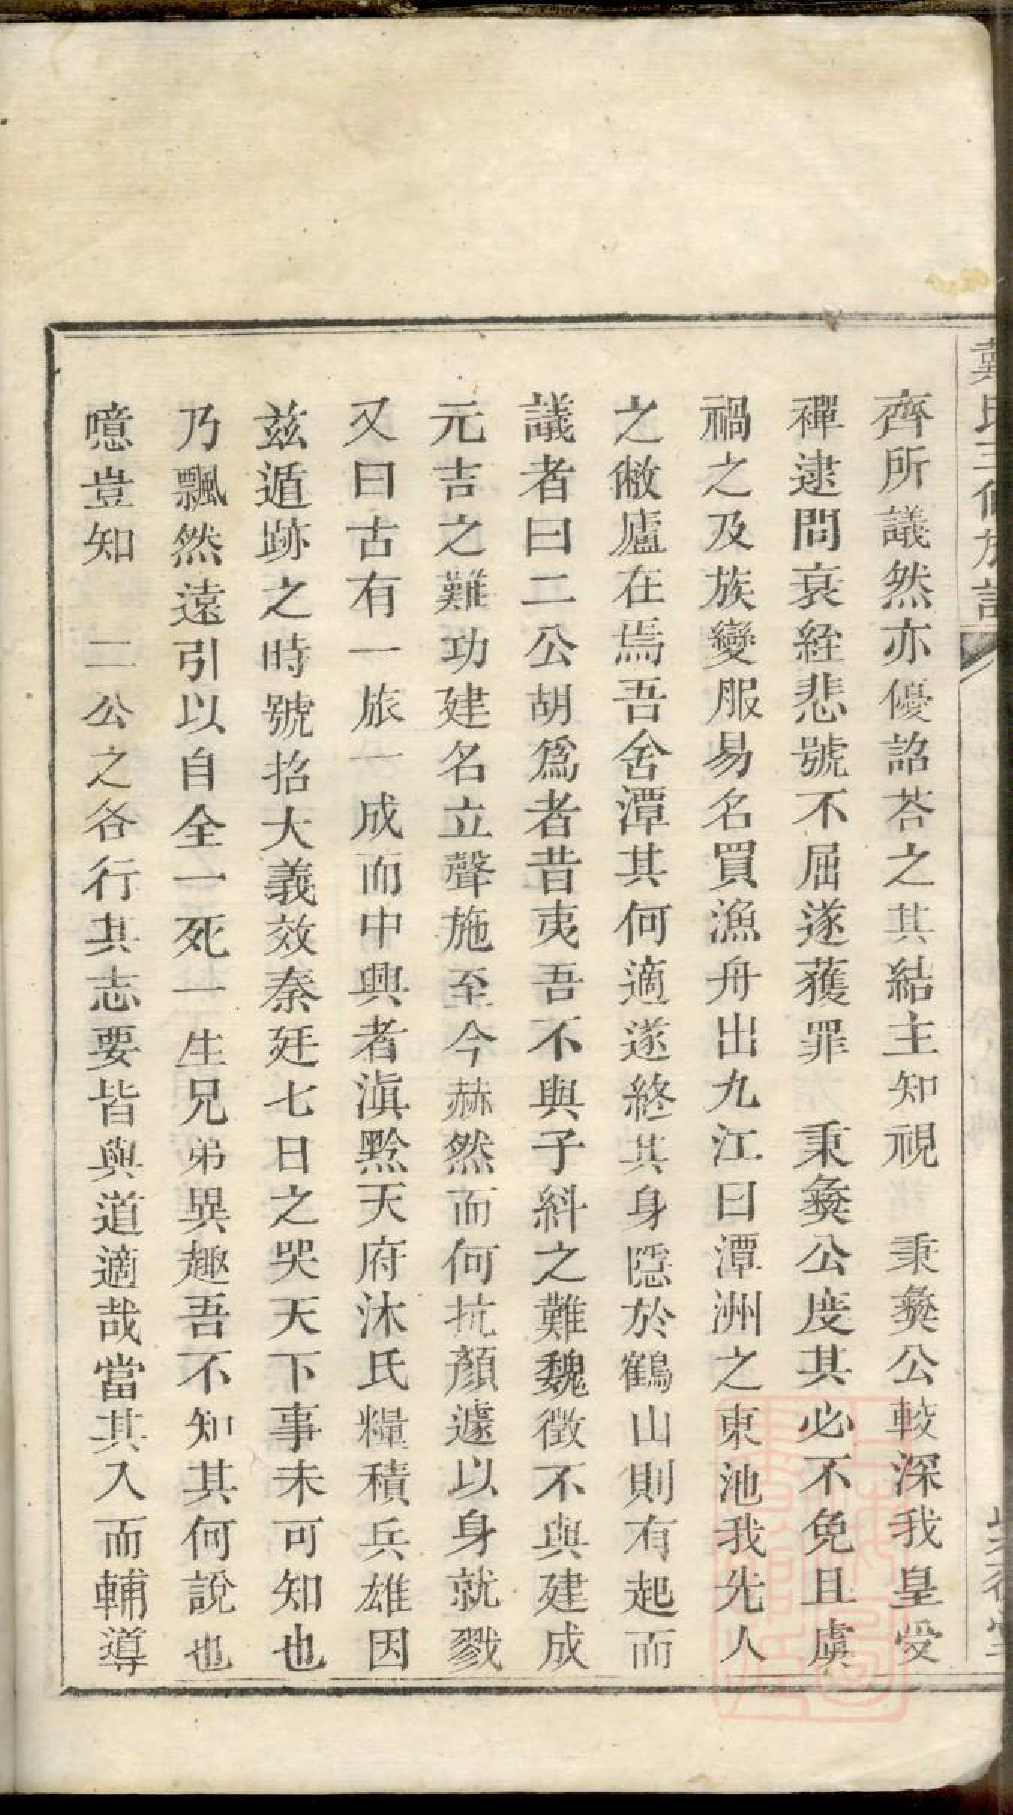 齊所議然亦優詔荅之其結主知視　秉彜公較深我皇受
禪逮問衰絰悲號不屈遂獲罪　秉彜公度其必不免且虞
禍之及族變服易名買漁舟出九江曰潭洲之東池我先人
之僘廬在焉吾舍潭其何適遂終其身隱於鶴山則有起而
議者曰二公胡爲者昔夷吾不與子糾之難魏徵不與建成
元吉之難功建名立聲施至今赫然而何抗顏遽以身就戮
又曰古有一旅一成而中興者滇黔天府沐氏糧積兵雄因
茲遁跡之時號招大義效秦廷七日之哭天下事未可知也
乃飄然遠引以自全一死一生兄弟異趣吾不知其何說也
噫豈知　二公之各行其志要皆與道適哉當其入而輔導